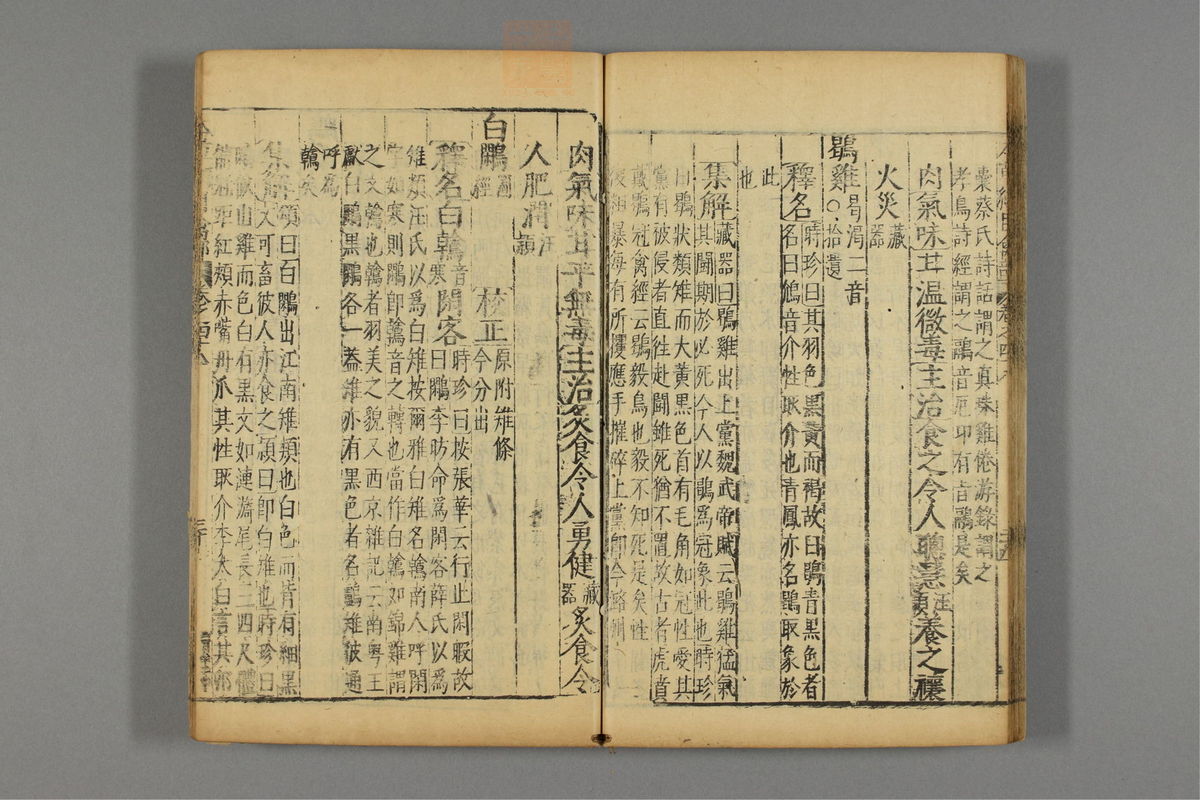 棗蔡氏詩話謂之真珠雞倦游錄謂之
孝鳥詩經謂之鷊音厄卬有旨鷊是矣
肉氣味甘溫微毒主治食之令人聰慧汪穎養之禳
火災藏器
鶡雞曷渴二音○拾遺
釋名時珍曰其羽色黑黃而褐故曰鶡青黑色者
名曰鳻音介性耿介也青鳳亦名鶡取象於
此也
集解藏器曰鶡雞出上黨魏武帝賦云鶡雞猛氣
其鬪期於必死今人以鶡爲冠象此也時珍
曰鶡狀類雉而大黃黑色首有毛角如冠性愛其
黨有被侵者直往赴鬪雖死猶不置故古者虎賁
戴鶡冠禽經云鶡毅鳥也毅不知死是矣性
粗暴每有所攫應手摧碎上黨即今潞州
肉氣味甘平無毒主治炙食令人勇健藏器炙食令
人肥潤汪穎
白鷴圖經 校正原附雉條今分出
釋名白鵫音寒閑客時珍曰按張華云行止閑暇故
曰鷴李昉命爲閑客薛氏以爲
雉類汪氏以爲白雉按爾雅白雉名鵫南人呼閑
字如寒則鷴即鵫音之轉也當作白鵫如錦雞謂
之文鵫也鵫者羽美之貌又西京雜記云南粤王
獻白鷴黑鷴各一蓋雉亦有黑色者名鸕雉彼通
呼爲鵫矣
集解頌曰白鷴出江南雉類也白色而背有細黑
文可畜彼人亦食之穎曰即白雉也時珍曰
鷴似山雞而色白有黑文如漣漪尾長三四尺體
備冠距紅頰赤嘴丹爪其性耿介李太白言其卵